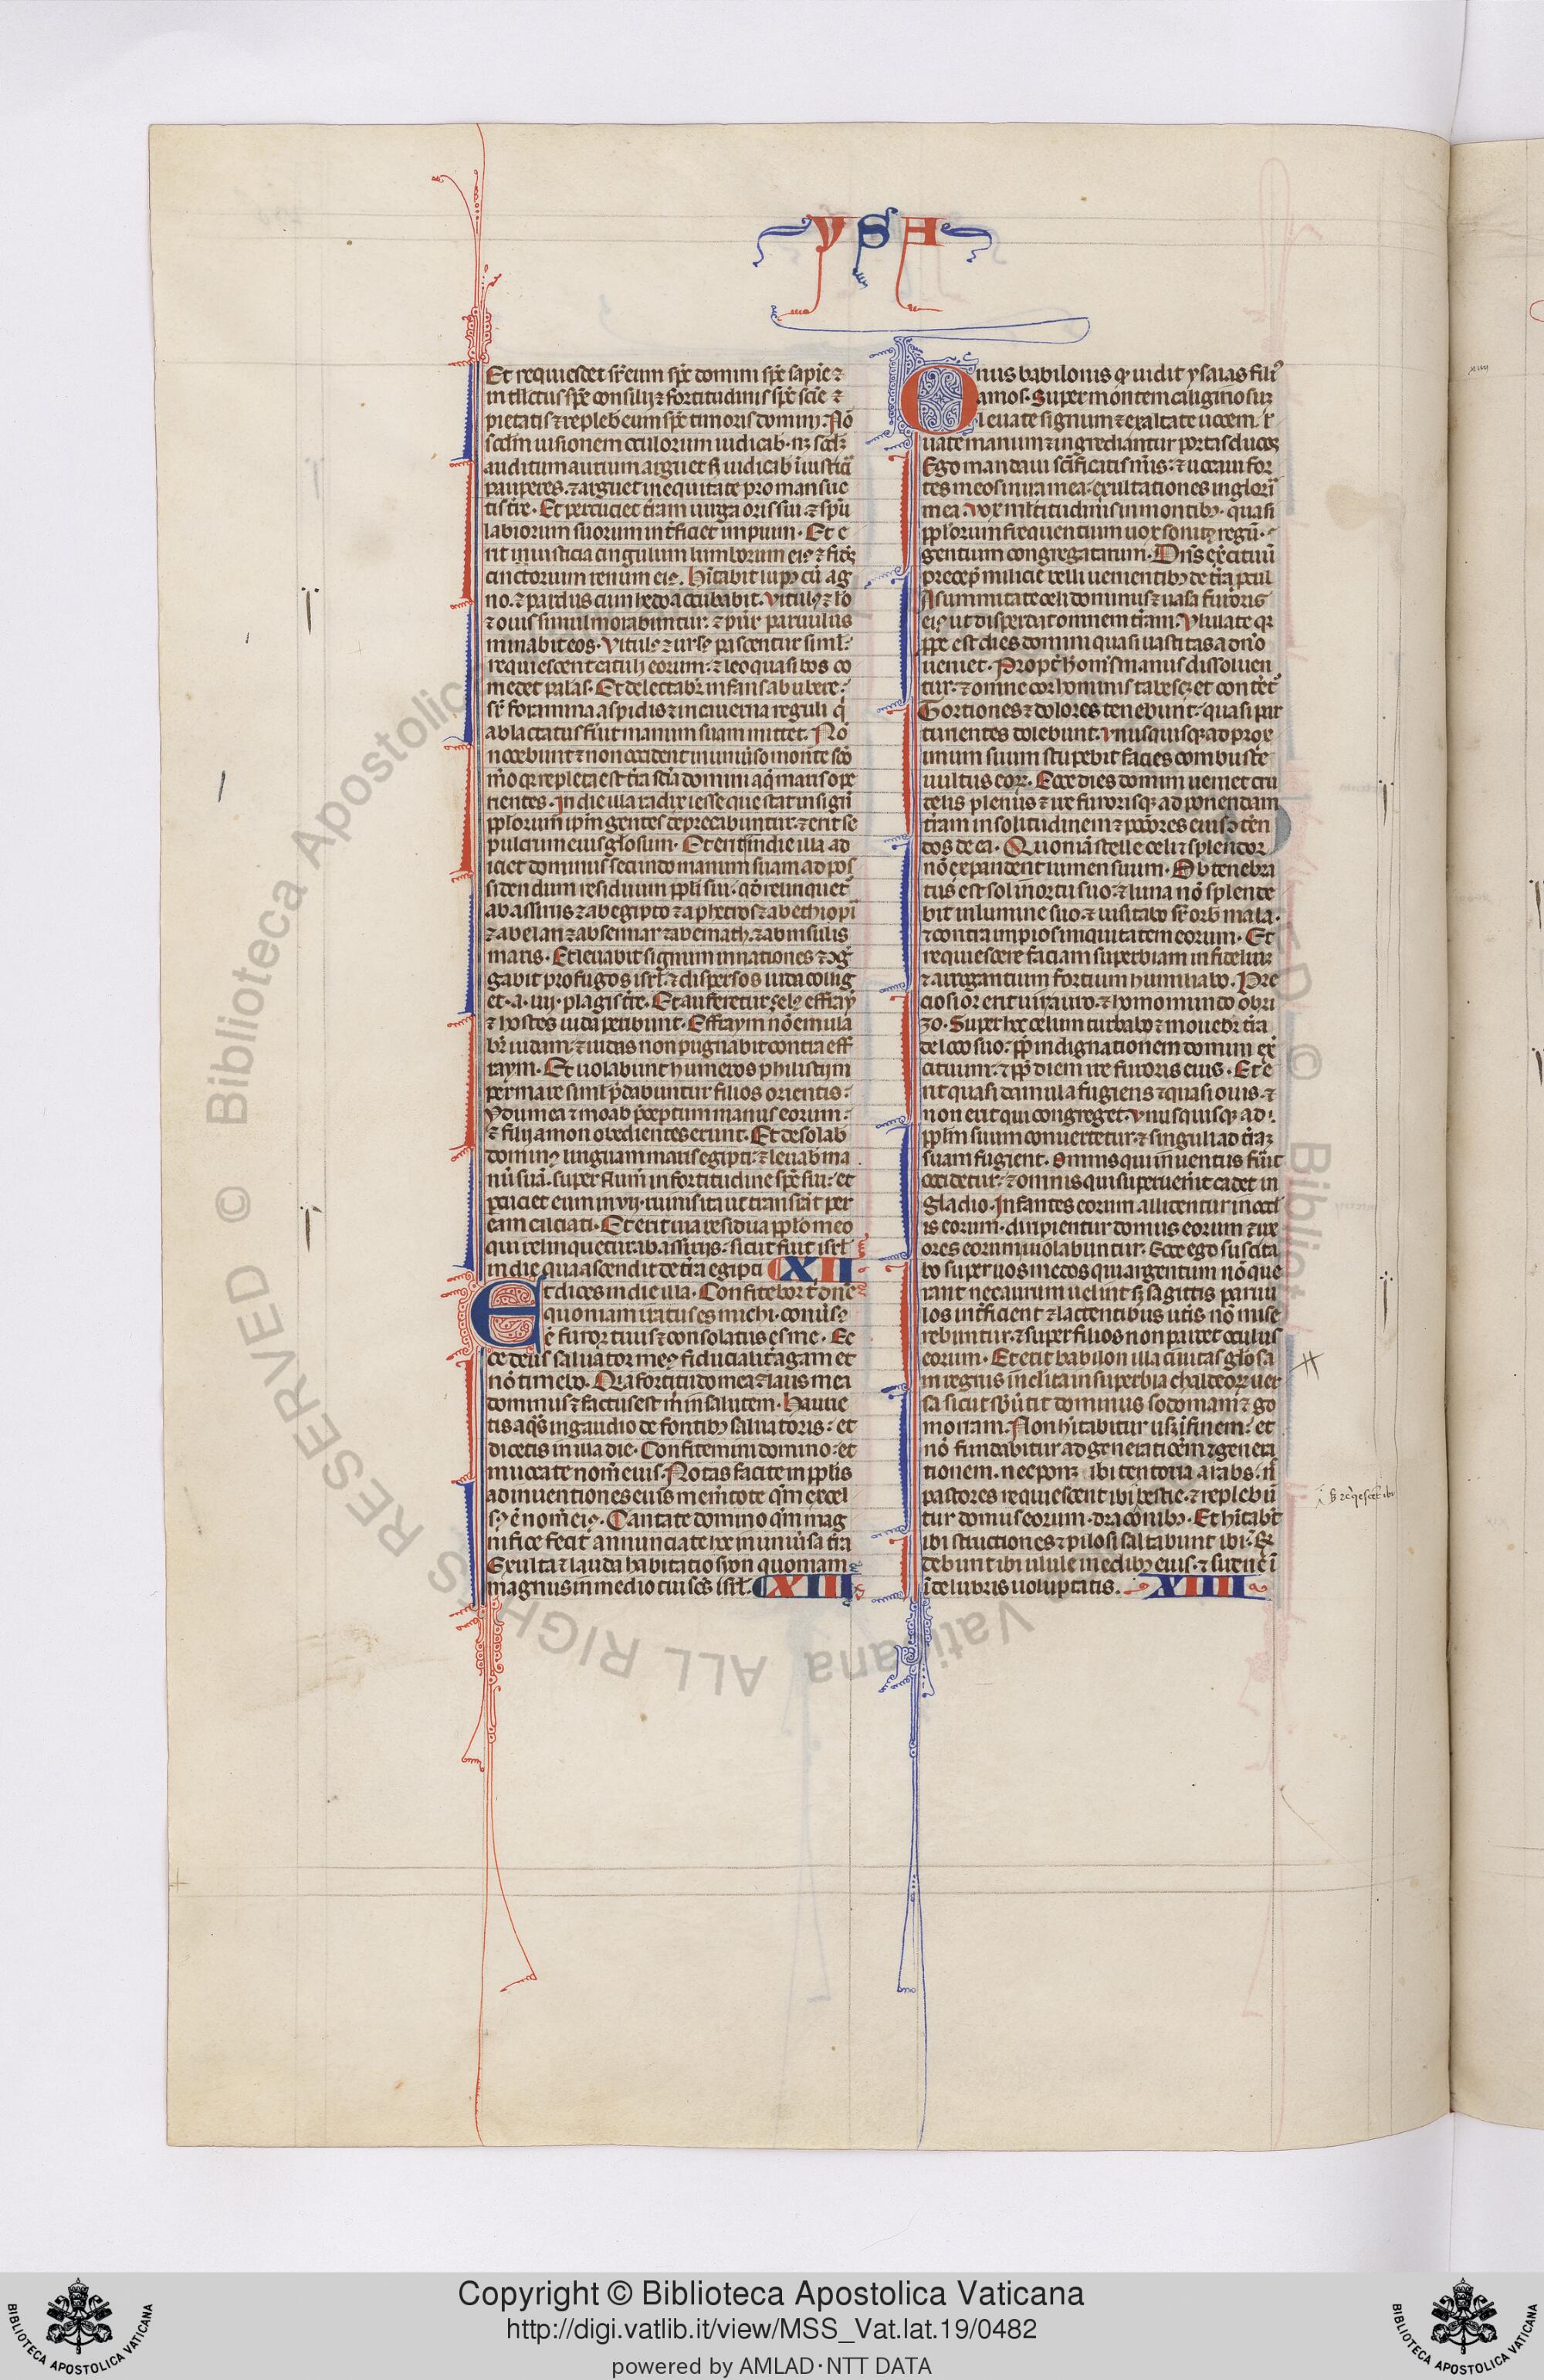 YSA
Et requiescet sr̄ eum sp̄c domini sp̄c sapīe ⁊
intllctus sp̄c consilij ⁊ fortitudinis sp̄c scīe ⁊
pietatis ⁊ repleb eum sp̄c timoris domini. Nō
scd̄m uisionem oculorum iudicab. nꝫ scd̄ꝫ
auditum aurium arguet sꝫ iudicab ī iusticia
pauperes. ⁊ arguet in equitate pro mansue
tis tr̄e. Et percuciet tr̄am uirga oris sui. ⁊ spū
labiorum suorum int̄ficiet impium. Et e
rit iusticia cingulum lumborum eiꝰ ⁊ fides
cinctorium renum eiꝰ. Hītabit lupꝰ cū ag
no. ⁊ pardus cum hedo accubabit. Vitulꝰ ⁊ lo
⁊ ouis simul morabuntur. ⁊ puer paruulus
minabit eos. Vitulꝰ ⁊ ursꝰ pascentur siml̄.
requiescent catuli eorum. ⁊ leo quasi bos co
medet palas. Et delectabr̄ infans ab ubere.
sr̄ foramina aspidis ⁊ in cauerna reguli q̄
ablactatus fuīt manum suam mittet. Nō
nocebunt ⁊ non occident in uniuso monte scō
mō qꝛ repleta est tr̄a sciā domini aq̄ maris ope
rientes. In die illa radix iesse que stat in signū
pplorum ip̄m gentes deprecabuntur. ⁊ erit se
pulcrum eius glosum. Et erit in die illa ad
iciet dominus secundo manum suam ad pos
sidendum residuum ppli sui. qō relinquet
ab assirijs ⁊ ab egipto ⁊ a phetros ⁊ ab ethiopi
⁊ ab elan ⁊ ab sennar ⁊ ab emath. ⁊ ab insulis
maris. Et leuabit signum in nationes ⁊ ɔḡ
gabit profugos isrl̄. ⁊ dispersos iuda collig
et. a. iiij. plagis tr̄e. Et auferetur ȝelꝰ effray
⁊ hostes iuda peribunt. Effraym nō emula
br̄ iudam. ⁊ iudas non pugnabit contra eff
raym. Et uolabunt humeros philistijm
per mare siml̄ p̄dabuntur filios orientis.
ydumea ⁊ moab p̄ceptum manus eorum.
⁊ filij amon obedientes erunt. Et desolab
dominꝰ linguam maris egipti. ⁊ leuab ma
nū suā. super flum̄ in fortitudine sp̄c sui. et
ꝑcuciet eum in vij. riuis ita ut transeāt per
eam calciati. Et erit uia residua pplo meo
qui relinquetur ab assirijs. sicut fuit isrl̄
in die qua ascendit de tr̄a egipti XII
Et dices in die illa. Confitebor t̄ dnē
quoniam iratus es michi. conūsꝰ
ē furor tuus ⁊ consolatus es me. Ec
ce deus saluator meꝰ fiducialit̄ agam et
nō timebo. Qꝛa fortitudo mea ⁊ laus mea
dominus ⁊ factus est m̄ in salutem. Haurie
tis aq̄s in gaudio de fontibꝰ saluatoris. et
dicetis in illa die. Confitemini domino. et
inuocate nom̄ eius. Notas facite in pplis
adinuentiones eius mem̄tote qm̄ excel
sꝰ ē nom̄ eiꝰ. Cantate domino qm̄ mag
nifice fecit annunciate hoc in uniūsa tr̄a
Exulta ⁊ lauda habitatio syon quoniam
magnus in medio tui scs̄ isrl̄. XIII
Onus babilonis qꝰ uidit ysaias filiꝰ
amos. Super montem caliginosuꝫ
leuate signum ⁊ exaltate uocem. l
uate manum ⁊ ingrediantur portas duces
Ego mandaui sc̄ificatis m̄is. ⁊ uocaui for
tes meos in ira mea. exultationes in glori
mea. Vox mltitudinis in montibꝰ. quasi
pplorum frequentium uox sonitꝰ regū.
gentium congregatarum. Dn̄s ex̄cituū
precep̄ milicie belli uenientibꝰ de tr̄a procul
A summitate celi dominus ⁊ uasa furoris
eiꝰ ut disperdat omnem tr̄am. Vlulate qꝛ
ꝓpe est dies domini quasi uastitas a dn̄o
ueniet. Propt̄ h om̄s manus dissoluen
tur. ⁊ omne cor hominis tabesꝫ et contet̄
Tortiones ⁊ dolores tenebunt. quasi par
turientes dolebunt. Vnusquisqꝫ ad prox
imum suum stupebit facies combuste
uultus eoꝝ. Ecce dies domini ueniet cru
delis plenus ⁊ ire furorisqꝫ ad ponendam
tr̄am in solitudinem ⁊ pcc̄ores eius ɔter̄n
dos de ea. Quoniā stelle celi ⁊ splendor
nō expandent lumen suum. Obtenebra
tus est sol in ortu suo. ⁊ luna nō splende
bit in lumine suo. ⁊ uisitabo sr̄ orb mala.
⁊ contra impios iniquitatem eorum. Et
requiescere faciam superbiam infideliuꝫ
⁊ arrogantium fortium humiliabo. Pre
ciosior erit uir auro. ⁊ homo mundo obri
zo. Super hoc celum turbabo ⁊ mouebr̄ tr̄a
de loco suo. ꝓp̄ indignationem domini ex̄
cituum. ⁊ ꝓp̄ diem ire furoris eius. Et e
rit quasi damula fugiens ⁊ quasi ouis. ⁊
non erit qui congreget. Vnusquisqꝫ ad
pplm̄ suum conuertetur. ⁊ singuli ad tr̄aꝫ
suam fugient. Omnis qui inuentus fuīt
occidetur. ⁊ omnis qui superuen̄it cadet in
gladio. Infantes eorum allidentur in occl̄
is eorum. diripientur domus eorum ⁊ ux
ores eorum uiolabuntur. Ecce ego suscita
bo super uos medos qui argentum nō que
rant nec aurum uelint sꝫ sagittis paruu
los int̄ficient ⁊ lactentibus ut̄is nō mise
rebuntur. ⁊ super filios non parcet oculus
eorum. Et erit babilon illa ciuitas glosa
in regnis inclita in superbia chaldeoꝝ uer
sa sicut sb̄ūtit dominus sodomam ⁊ go
morram. Non hītabitur usqꝫ ī finem. et
nō fundabitur ad generationem ⁊ genera
tionem. nec ponꝫ ibi tentoria arabs. n̄
pastores requiescent ibi bestie. ⁊ replebū
tur domus eorum. draconibꝰ. Et hītabt̄
ibi structiones ⁊ pilosi saltabunt ibi. ⁊ r̄n
debunt ibi ulule in edibꝰ eius. ⁊ sirene ī
ī delubris uoluptatis. XIIII
© Biblioteca Apostolica Vaticana ALL RIGHTS RESERVED
Copyright © Biblioteca Apostolica Vaticana
http://digi.vatlib.it/view/MSS_Vat.lat.19/0482
powered by AMLAD·NTT DATA
BIBLIOTECA APOSTOLICA VATICANA
BIBLIOTECA APOSTOLICA VATICANA